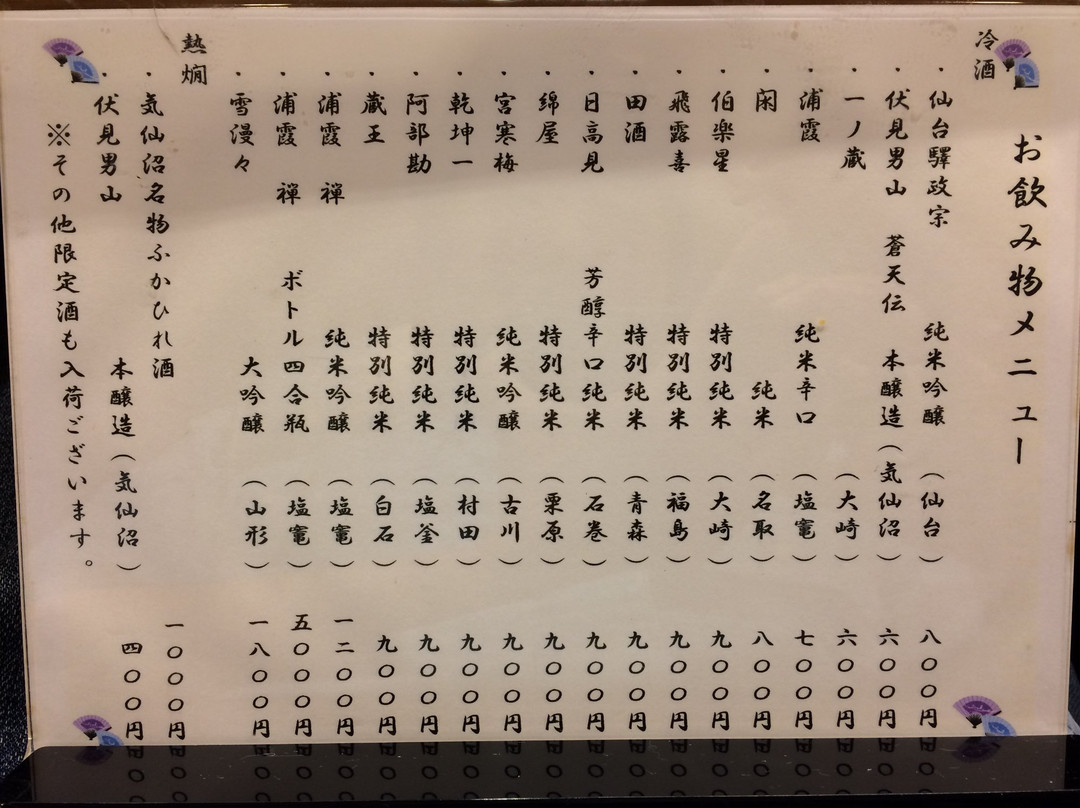 お飲み物メニュー
冷酒
・仙台驛政宗 純米吟醸 （仙台） 八〇〇円
・伏見男山 蒼天伝 本醸造（気仙沼） 六〇〇円
・一ノ蔵 （大崎） 六〇〇円
・浦霞 純米辛口 （塩竈） 七〇〇円
・閖 純米 （名取） 八〇〇円
・伯楽星 特別純米 （大崎） 九〇〇円
・飛露喜 特別純米 （福島） 九〇〇円
・田酒 特別純米 （青森） 九〇〇円
・日高見 芳醇辛口純米 （石巻） 九〇〇円
・綿屋 特別純米 （栗原） 九〇〇円
・宮寒梅 純米吟醸 （古川） 九〇〇円
・乾坤一 特別純米 （村田） 九〇〇円
・阿部勘 特別純米 （塩釜） 九〇〇円
・蔵王 特別純米 （白石） 九〇〇円
・浦霞 禅 純米吟醸 （塩竈） 一二〇〇円
・浦霞 禅 ボトル四合瓶 （塩竈） 五〇〇〇円
・雪漫々 大吟醸 （山形） 一八〇〇円
熱燗
・気仙沼名物ふかひれ酒 一〇〇〇円
・伏見男山 本醸造（気仙沼） 四〇〇円
※その他限定酒も入荷ございます。